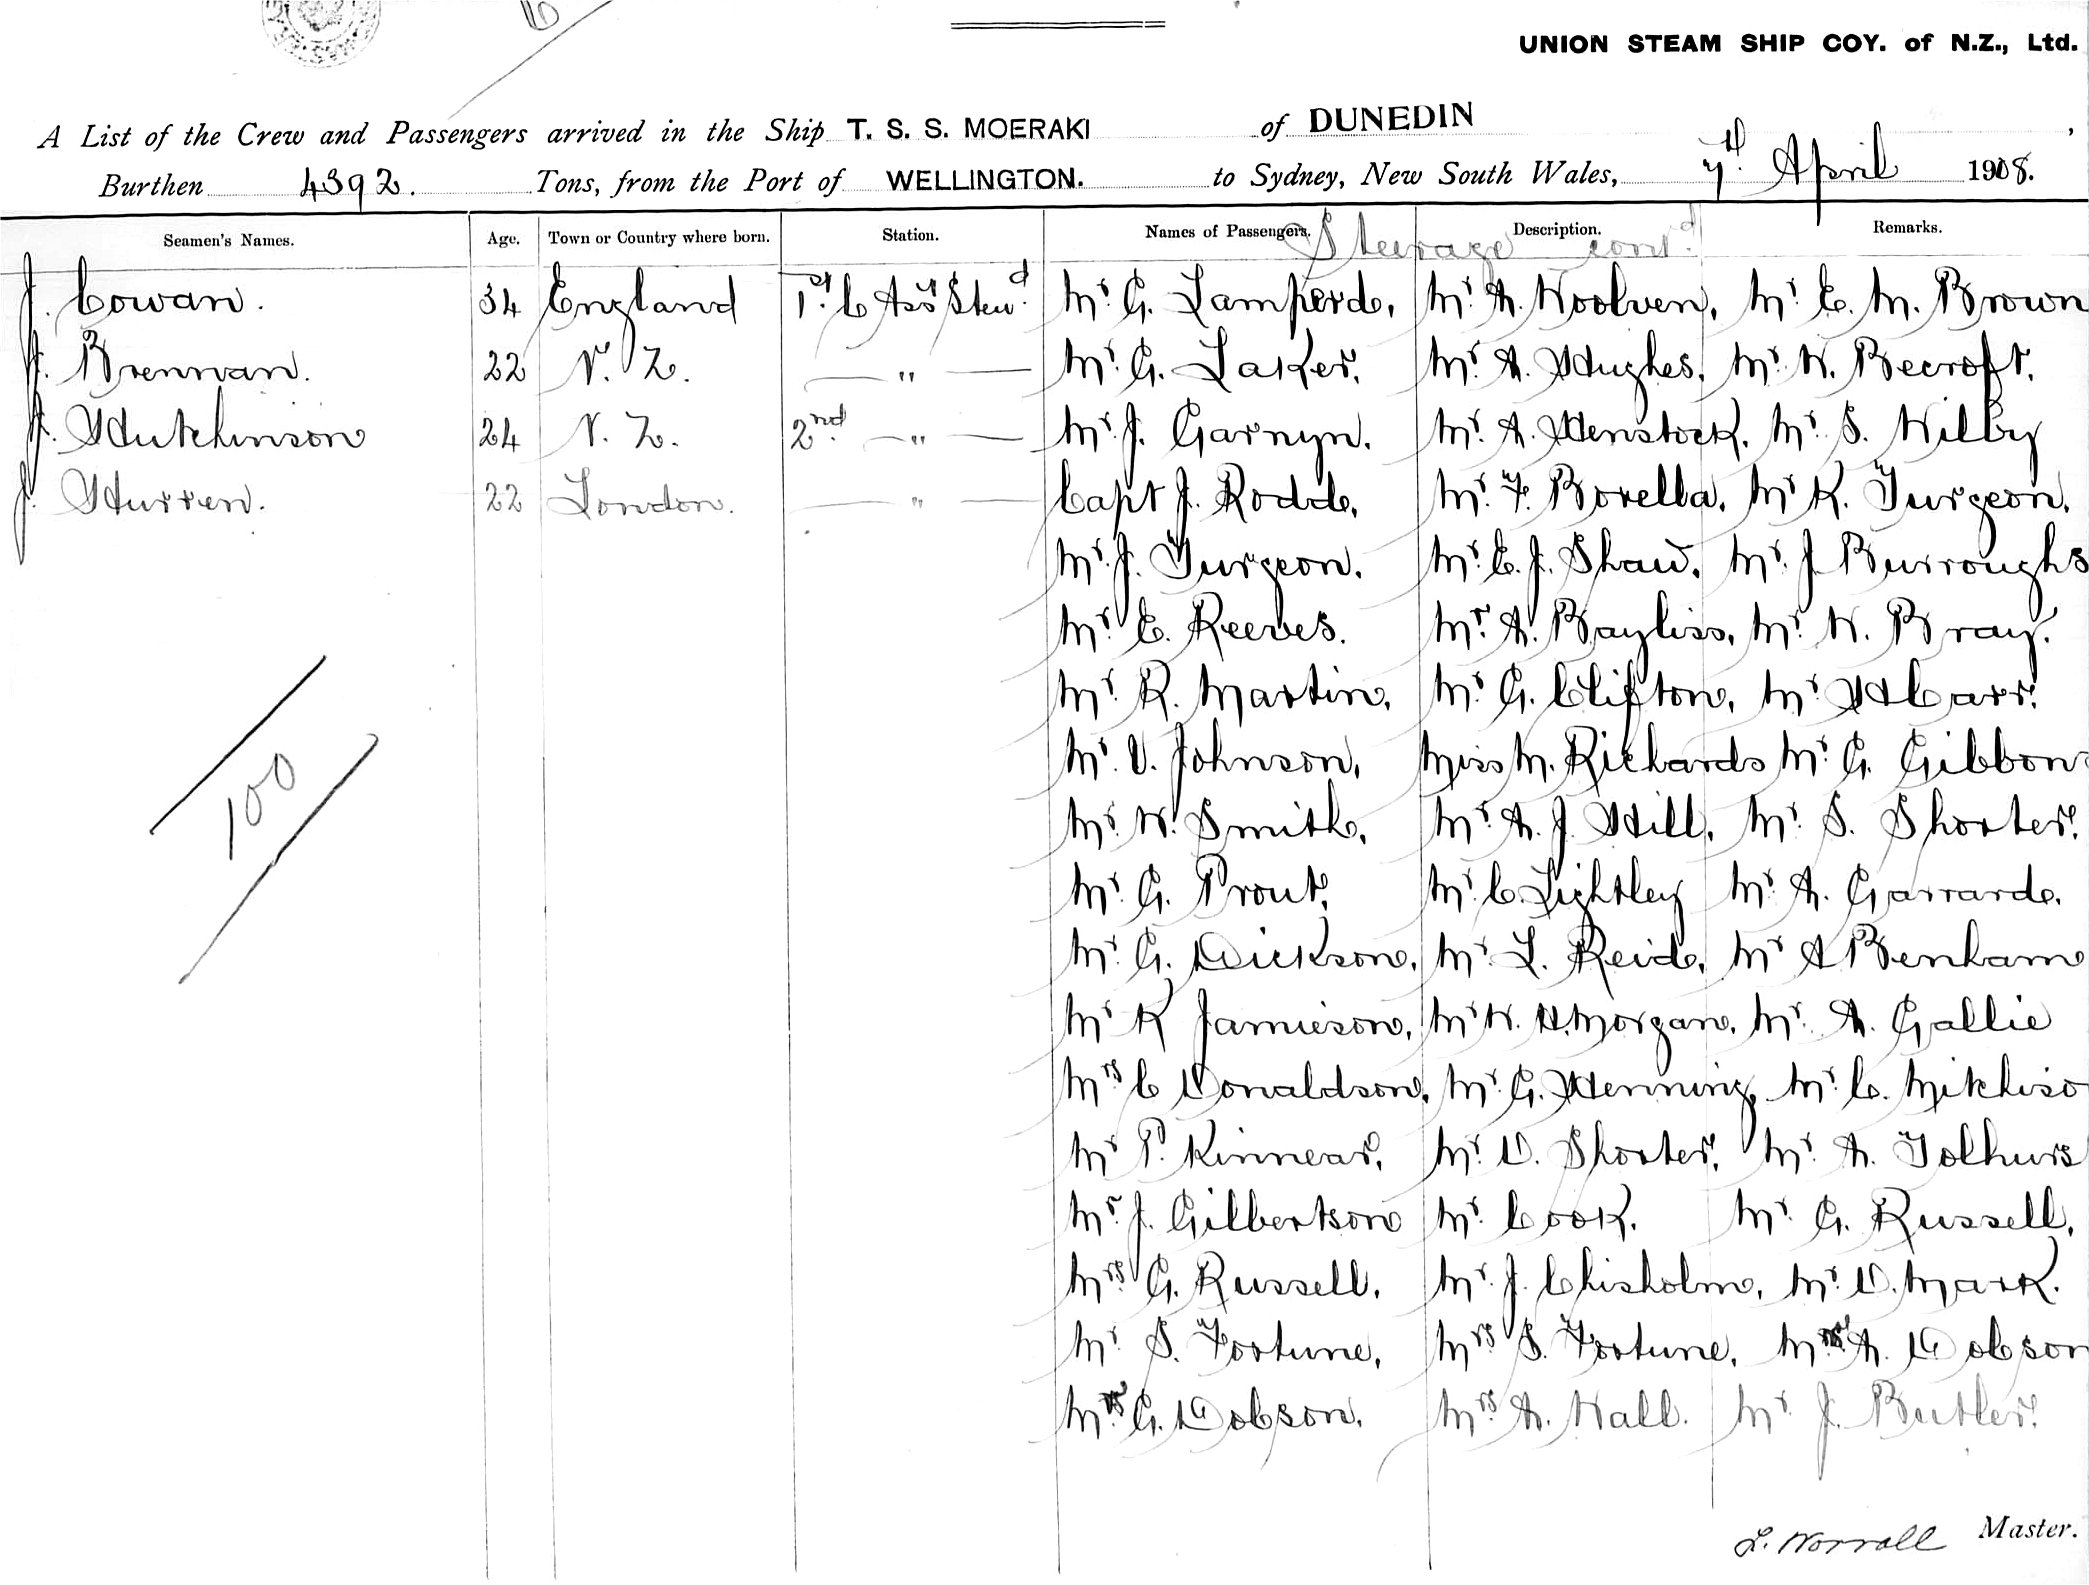 UNION STEAM SHIP COY. of N.Z., Ltd.
A List of the Crew and Passengers arrived in the Ship T. S. S. MOERAKI of DUNEDIN
Burthen 4392. Tons, from the Port of WELLINGTON. to Sydney, New South Wales, 7th April 1908.
Seamen's Names. Age. Town or Country where born. Station. Names of Passengers. Description. Remarks.
Steerage contd
J. Cowan. 34 England 1st C Asst Stewd. Mr. G. Lamperd, Mr. A. Woolven, Mr. E. M. Brown
J. Brennan. 22 N. Z. " Mr. G. Laker, Mr. A. Hughes, Mr. W. Becroft,
J. Hutchinson 24 N. Z. 2nd " Mr. J. Garnyn. Mr. A. Henstock, Mr. S. Wilby
J. Hurren. 22 London. " Capt J. Rodd, Mr. F. Borella, Mr K. Turgeon,
Mr. J. Turgeon. Mr. C. J. Shaw, Mr. J Burroughs
Mr. E. Reeves. Mr. A. Bayliss, Mr. W. Bray.
Mr. R. Martin, Mr. G. Clifton, Mr H Carr.
Mr. V. Johnson, Miss M. Richards Mr. G. Gibbon
Mr. W. Smith, Mr. A. J. Hill, Mr. S. Shorter.
Mr. G. Prout, Mr. C Lightley Mr. A. Garrard.
Mr. G. Dickson, Mr. L. Reid, Mr A Benham
Mr K Jamieson, Mr W. H. Morgan, Mr. A. Gallie
Mrs C Donaldson, Mr. G. Henning, Mr. C. Mitchiso
Mr P. Kinnear, Mr. D. Shorter, Mr. A. Tolhurs
Mr. J. Gilbertson Mr. Cook. Mr. G. Russell,
Mrs G. Russell. Mr. J. Chisholm, Mr. D. Mark.
Mr S. Fortune, Mrs S. Fortune, Mr. A. Dobson
Mrs. G. Dobson. Mrs A. Hall. Mr J. Butler.
100
L. Worrall Master.